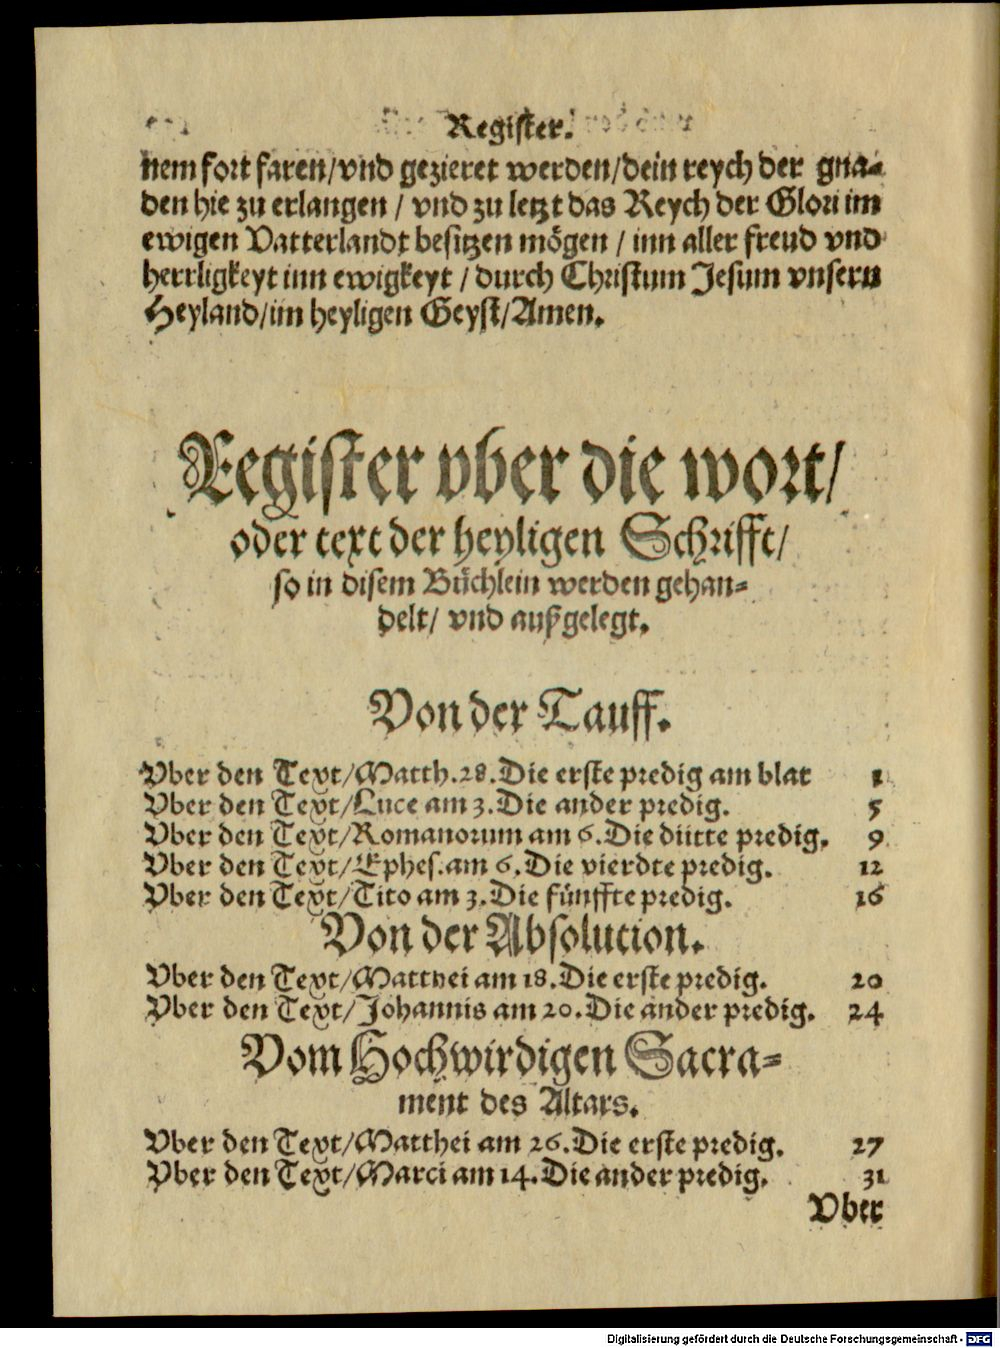 Register.
nem fort faren/vnd gezieret werden/dein reych der gna-
den hie zu erlangen / vnd zu letzt das Reych der Glori im
ewigen Vatterlandt besitzen mögen / inn aller freud vnd
herrligkeyt inn ewigkeyt / durch Christum Jesum vnsern
Heyland/im heyligen Geyst/Amen.
Register vber die wort/
oder text der heyligen Schrifft/
so in disem Büchlein werden gehan-
delt/ vnd außgelegt.
Von der Tauff.
Vber den Text/Matth.28.Die erste predig am blat 1
Vber den Text/Luce am 3.Die ander predig. 5
Vber den Text/Romanorum am 6.Die dritte predig. 9
Vber den Text/Ephes.am 6.Die vierdte predig. 12
Vber den Text/Tito am 3.Die fünffte predig. 16
Von der Absolution.
Vber den Text/Matthei am 18.Die erste predig. 20
Vber den Text/Johannis am 20.Die ander predig. 24
Vom Hochwirdigen Sacra-
ment des Altars.
Vber den Text/Matthei am 26.Die erste predig. 27
Vber den Text/Marci am 14.Die ander predig. 31
Vber
Digitalisierung gefördert durch die Deutsche Forschungsgemeinschaft - DFG